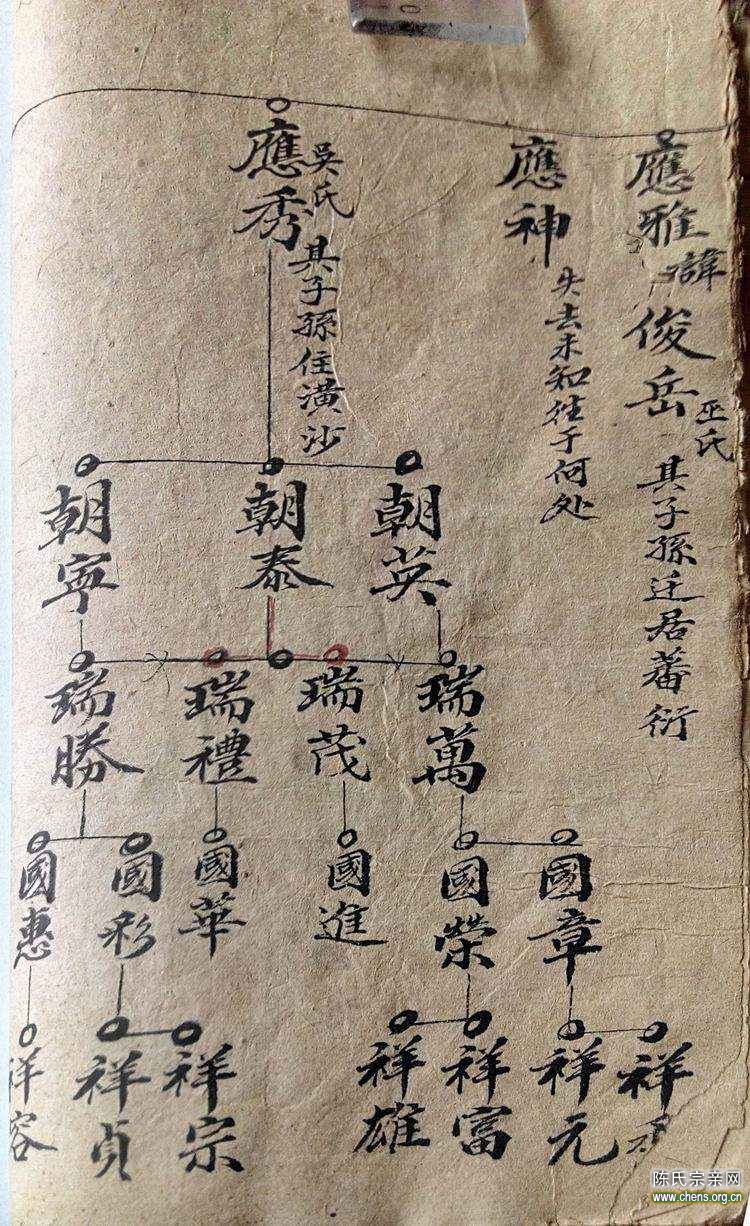 應雅諱俊岳
巫氏
其子孫迁居蕃衍
應神
失去未知往于何处
應秀
吳氏
其子孫住潢沙
朝英
朝泰
朝寧
瑞萬
瑞茂
瑞禮
瑞勝
國章
國榮
國進
國華
國彩
國惠
祥
祥元
祥富
祥雄
祥宗
祥貞
祥容
陈氏宗亲网
www.chens.org.cn